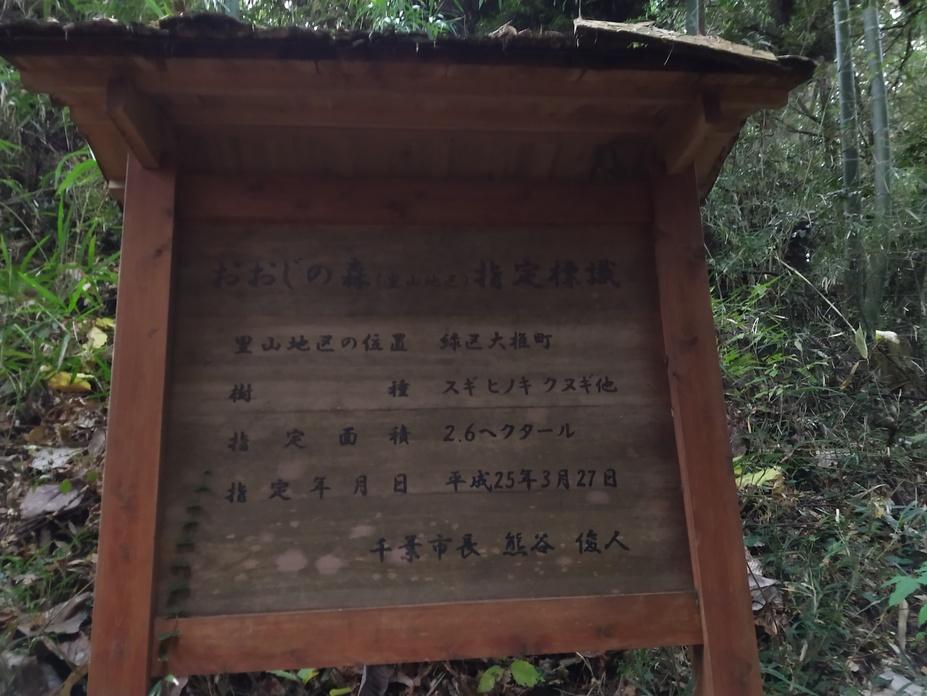 おおじの森(里山地区)指定標識
里山地区の位置 緑区大椎町
樹種 スギ ヒノキ クヌギ他
指定面積 2.6ヘクタール
指定年月日 平成25年3月27日
千葉市長 熊谷 俊人